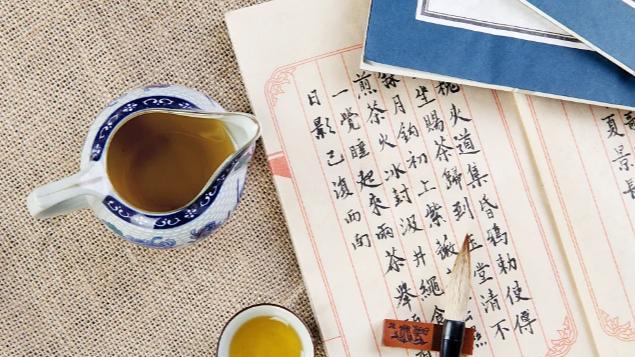 火道集昏鴉勅使傳
坐賜茶歸到玉堂清不
月鈎初上紫薇
煎茶火冰封汲井繩食
一覺睡起來雨茶舉
日影已復西向
夏景長